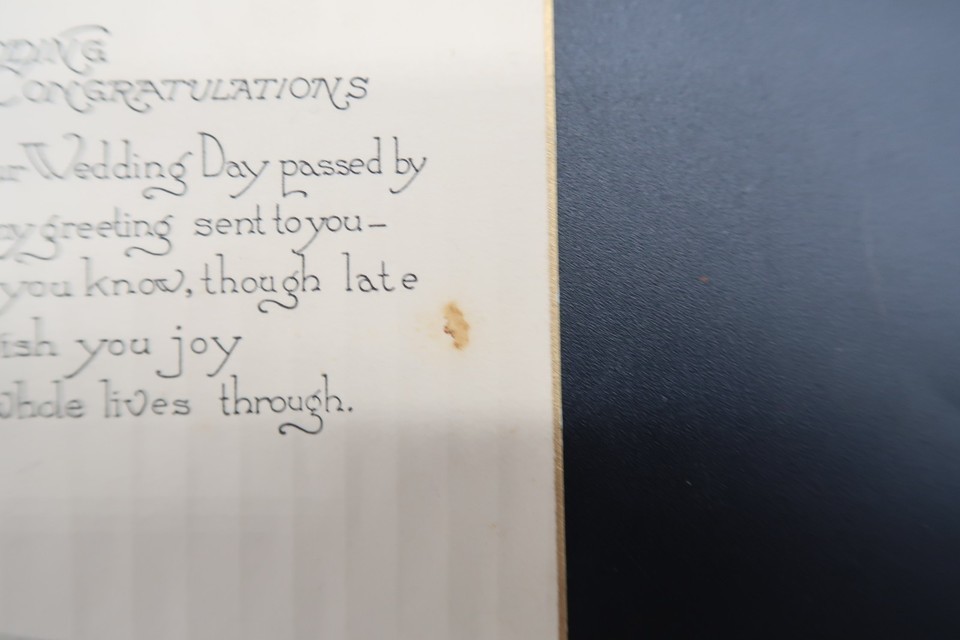 CONGRATULATIONS
Wedding Day passed by
greeting sent to you–
you know, though late
you joy
whole lives through.